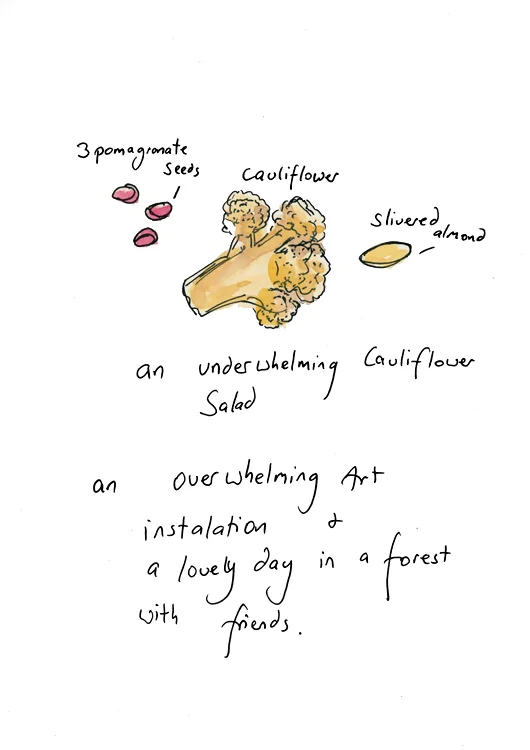 3 pomagranate
seeds
cauliflower
slivered
almond
an underwhelming Cauliflower
Salad
an overwhelming Art
instalation &
a lovely day in a forest
with friends.